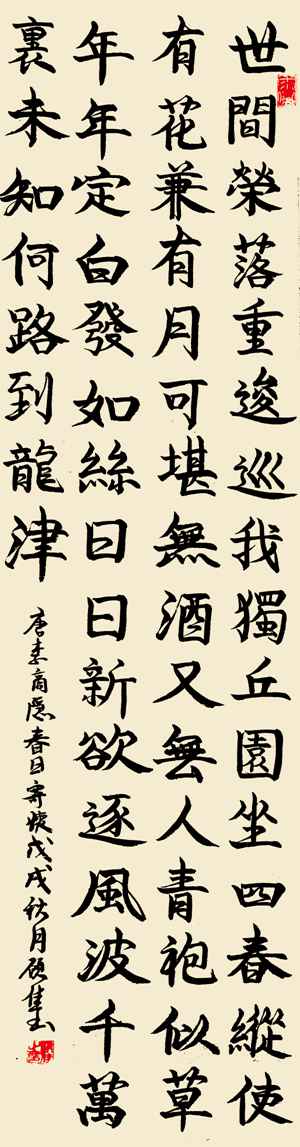 世間榮落重逡巡我獨丘園坐四春縱使
有花兼有月可堪無酒又無人青袍似草
年年定白發如絲日日新欲逐風波千萬
裏未知何路到龍津
唐李商隱春日寄懷戊戌秋月